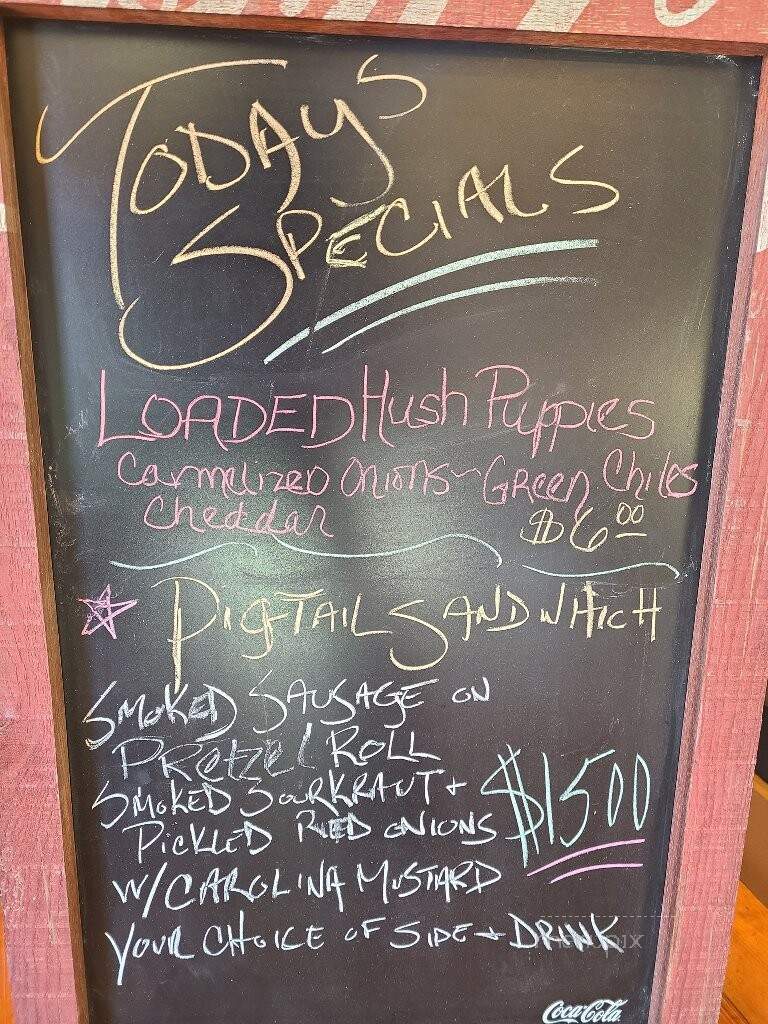 TODAYS
SPECIALS
LOADED Hush Puppies
Carmelized Onions ~ Green Chiles
Cheddar $6.00
PIGTAIL SANDWHICH
SMOKED SAUSAGE ON
PRETZEL ROLL
SMOKED SOURKRAUT +
PICKLED RED ONIONS $15.00
W/CAROLINA MUSTARD
YOUR CHOICE OF SIDE + DRINK
Coca-Cola